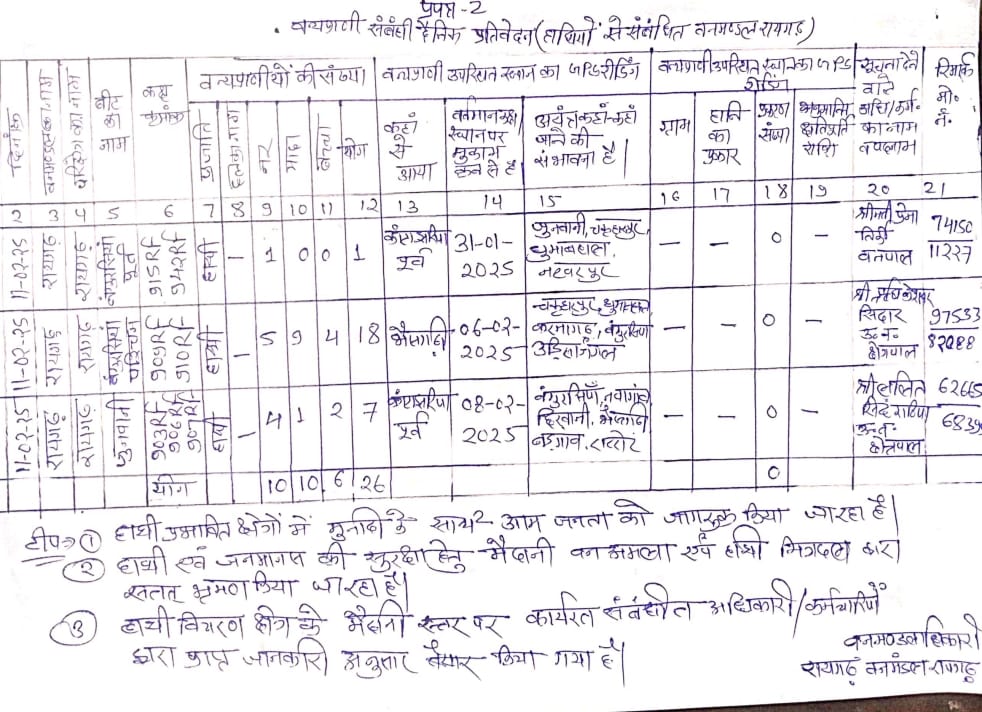 प्रपत्र -2
वन्यप्राणी संबंधी दैनिक प्रतिवेदन (हाथियों से संबंधित वनमण्डल रायगढ़)
दिनांक
वनमण्डल का नाम
परिक्षेत्र का नाम
बीट का नाम
कक्ष क्रमांक
वन्यप्राणीयों की संख्या
प्रजाति
हल्का नाम
नर
मादा
बच्चा
योग
वन्यप्राणी उपस्थित स्थान का GPS रीडिंग
कहां से आया
वर्तमान में स्थान पर मुकाम कब से है
अन्यत्र कहां-कहां जाने की संभावना है
ग्राम
हानि का प्रकार
प्रकरण संख्या
अनुमानित क्षतिपूर्ति राशि
सूचना देने वाले व्यक्ति/कर्म. का नाम व पदनाम
रिमार्क मो. नं.
2 3 4 5 6 7 8 9 10 11 12 13 14 15 16 17 18 19 20 21
11-02-25 रायगढ़ रायगढ़ पूर्व 915RF 942RF हाथी — 1 0 0 1 पूर्व 31-01-2025 जुनवानी, नटवरपुर — — 0 — श्रीमती प्रेमा तिर्की वनपाल 74150 11227
11-02-25 रायगढ़ रायगढ़ पश्चिम 909RF 910RF हाथी — 5 9 4 18 06-02-2025 — — 0 — श्री सिदार उ.व. क्षेत्रपाल 97533 82088
11-02-25 रायगढ़ रायगढ़ जुनवानी 903RF 906RF 907RF हाथी — 4 1 2 7 पूर्व 08-02-2025 नवागांव — — 0 — श्री ललित उ.व. क्षेत्रपाल 62665
योग 10 10 6 26 0
टीप→ ① हाथी प्रभावित क्षेत्रों में मुनादी के साथ2 आम जनता को जागरूक किया जा रहा है।
② हाथी एवं जनमानस की सुरक्षा हेतु मैदानी वन अमला एवं हाथी मित्रदल द्वारा
सतत् भ्रमण किया जा रहा है।
③ हाथी विचरण क्षेत्र के मैदानी स्तर पर कार्यरत संबंधित अधिकारी/कर्मचारियों
द्वारा प्राप्त जानकारी अनुसार तैयार किया गया है।
वनमण्डलाधिकारी
रायगढ़ वनमंडल रायगढ़